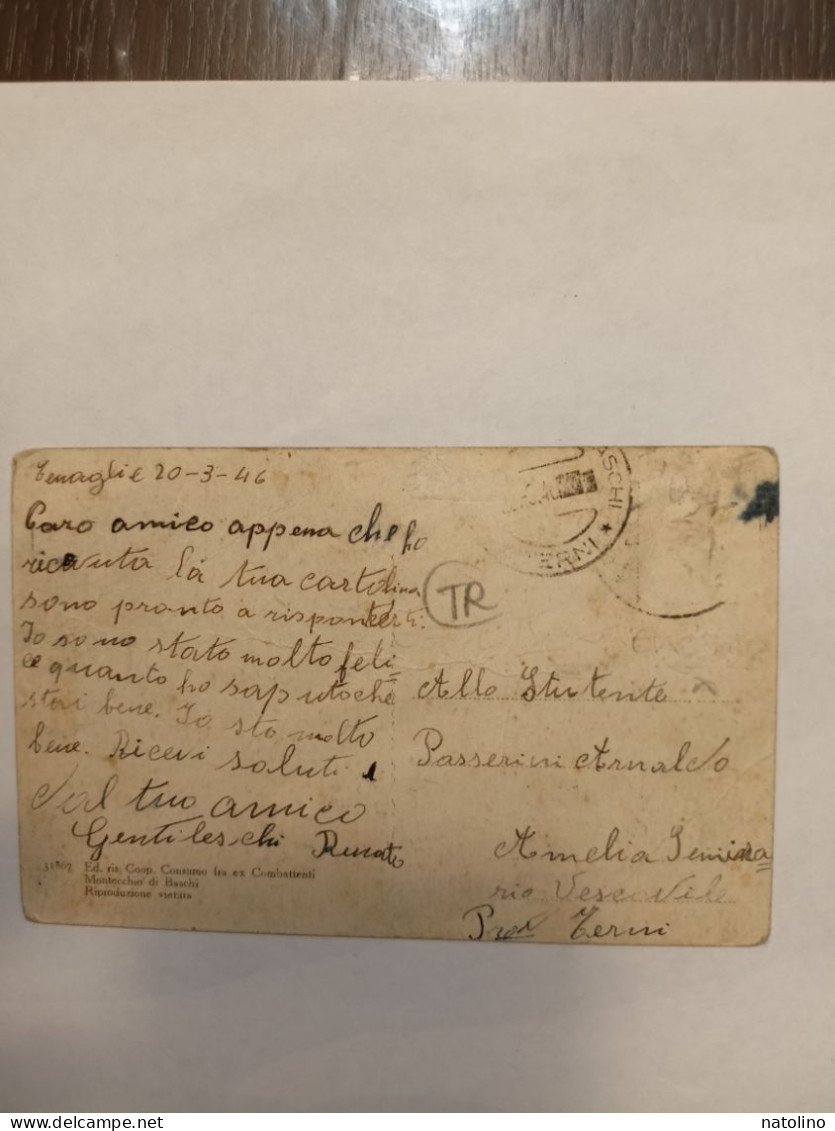 Tenaglie 20-3-46
Caro amico appena che ho
ricevuta la tua cartolina
sono pronto a risponderti.
Io sono stato molto feli=
ce quanto ho saputo che
stai bene. Io sto molto
bene. Ricevi saluti
dal tuo amico
Gentileschi Renato
31807 Ed. ris. Coop. Consumo fra ex Combattenti
Montecchio di Baschi
Riproduzione vietata
ASCHI
ERNI *
TR
Allo Studente
Passerini Arnaldo
Amelia Semina=
rio Vescovile
Prov Terni
natolino